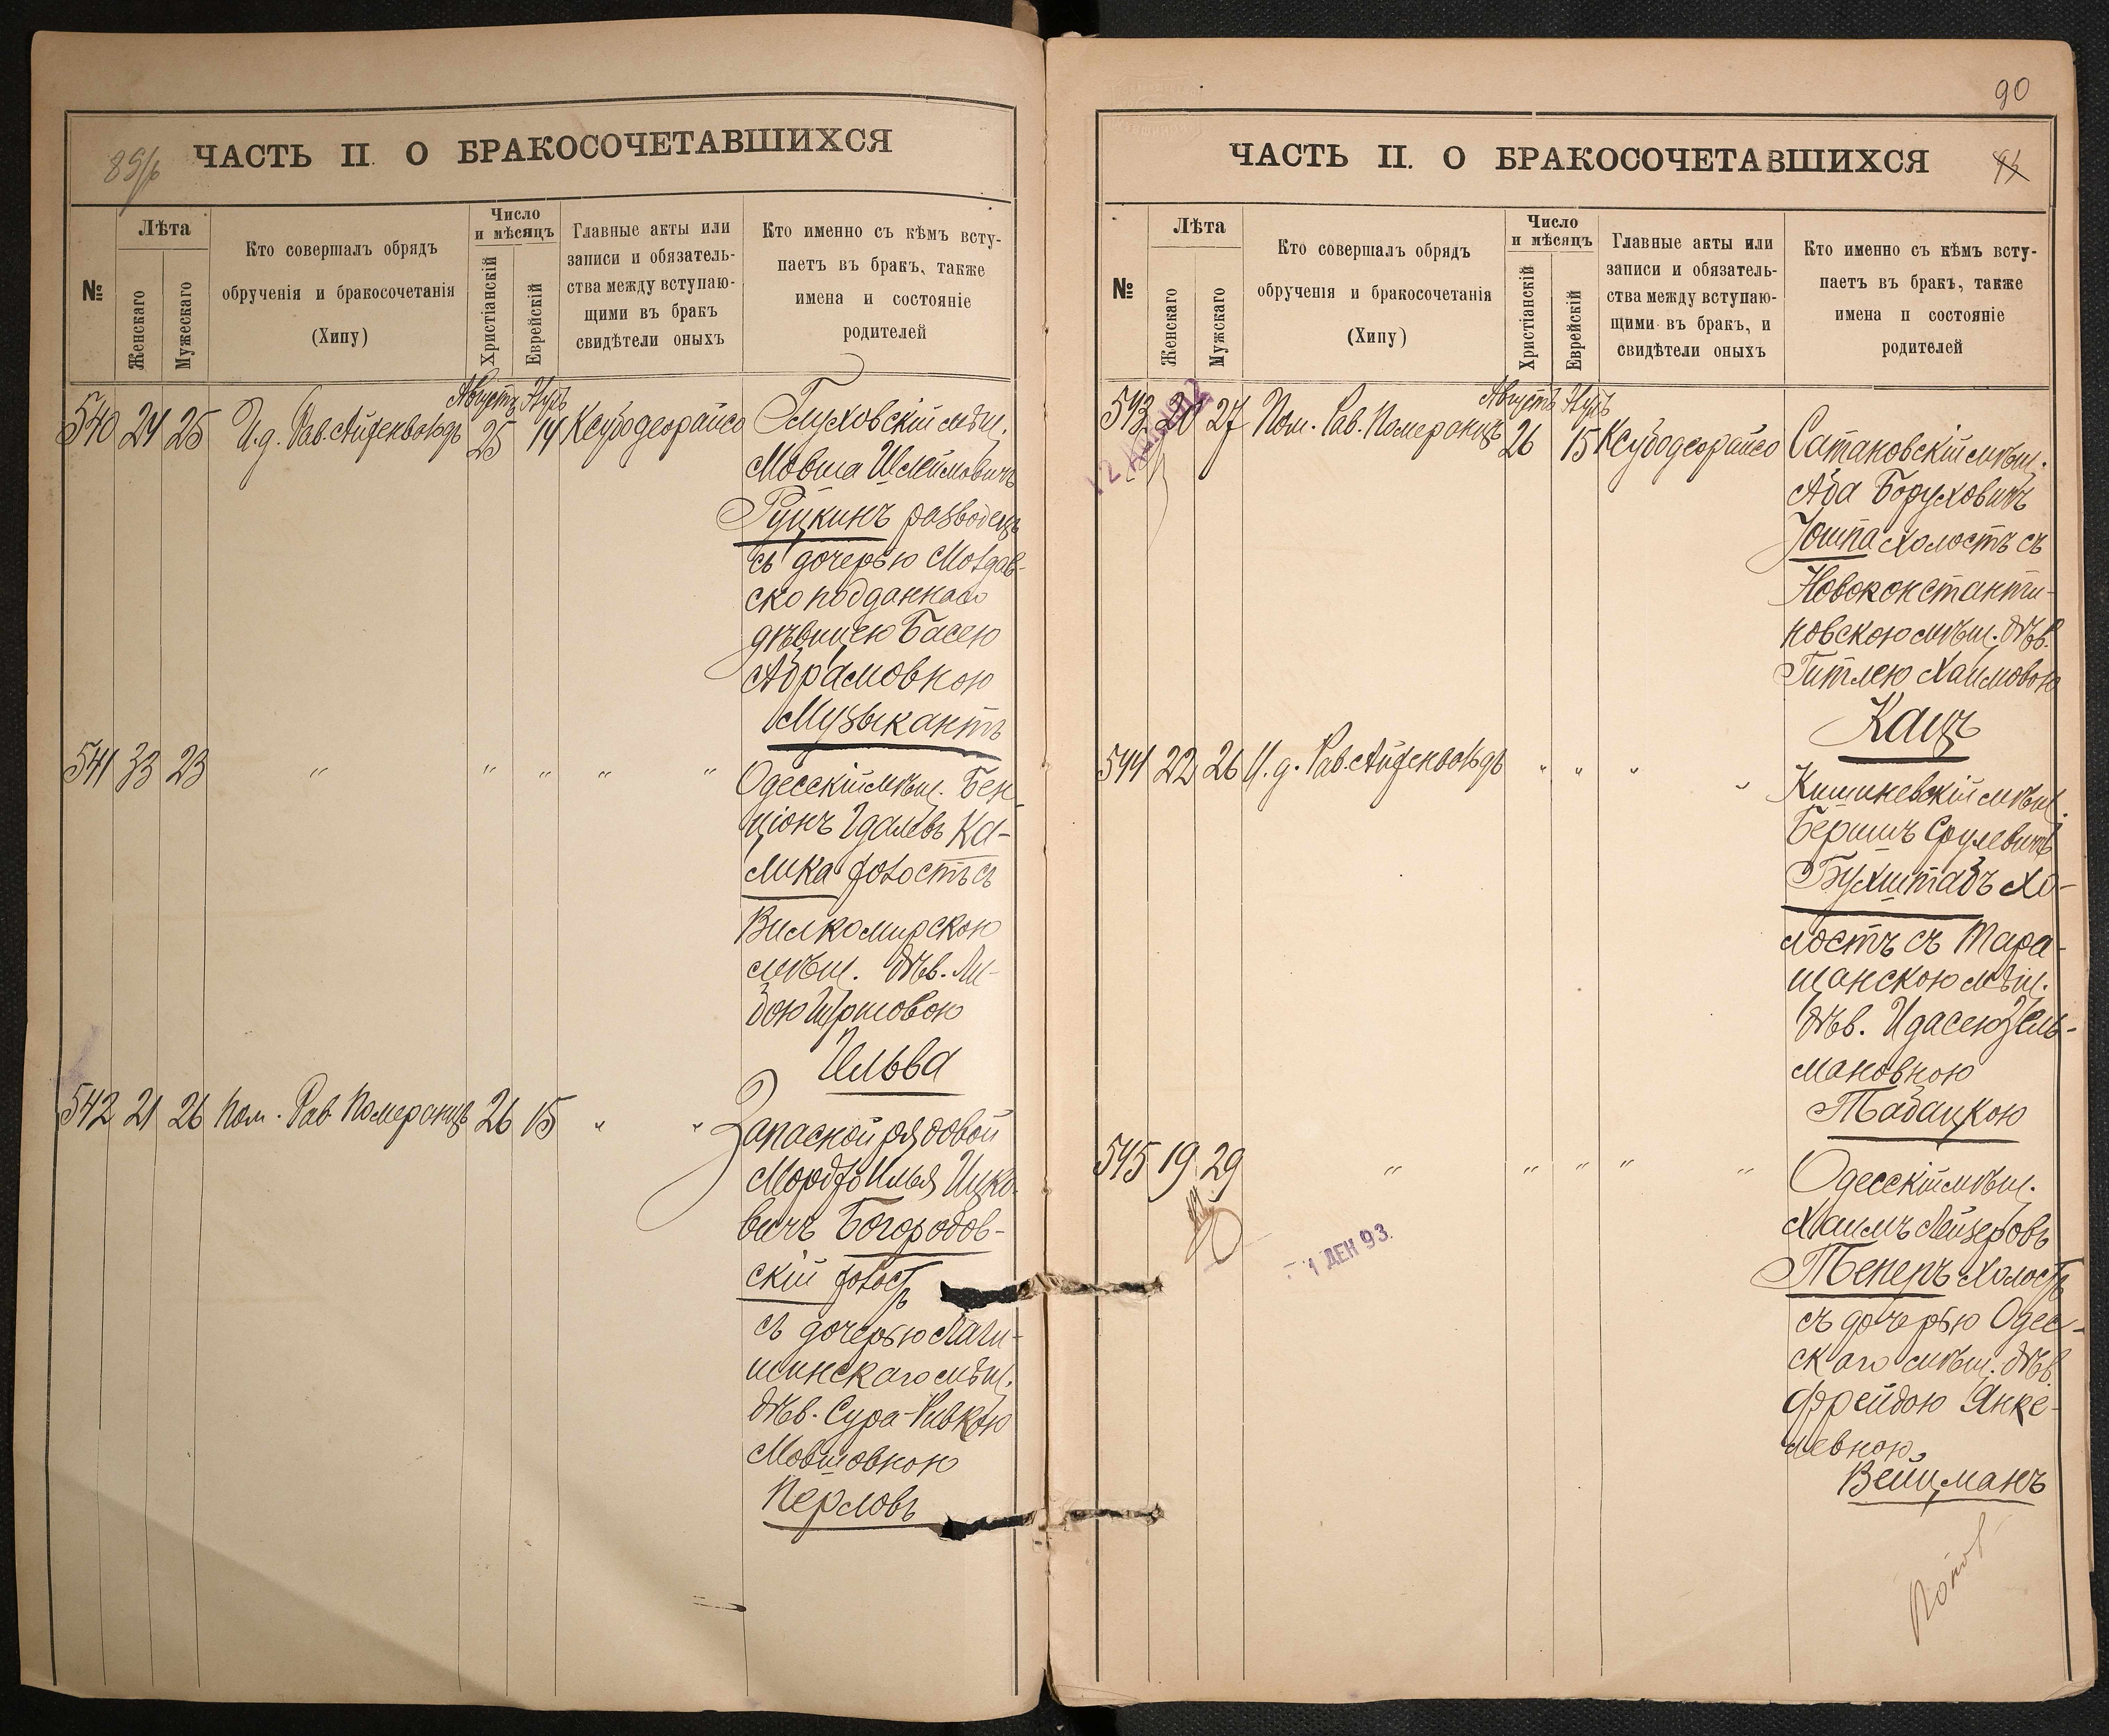 ЧАСТЬ II. О БРАКОСОЧЕТАВШИХСЯ
№
Лѣта
Женскаго
Мужескаго
Кто совершалъ обрядъ
обрученія и бракосочетанія
(Хипу)
Число
и мѣсяцъ
Христіанскій
Еврейскій
Главные акты или
записи и обязатель-
ства между вступаю-
щими въ бракъ
свидѣтели оныхъ
Кто именно съ кѣмъ всту-
паетъ въ бракъ, также
имена и состояніе
родителей
Августъ
540 24 25 И.д. Рав. Айзенвольдъ 25 14 Ксубодеорайсо Глуховскій мѣщ.
Мовша Шлеймовичъ
Руцкинъ разводецъ
съ дочерью Молдав-
ско подданнаго
дѣвицею Басею
Абрамовною
Музыкантъ
541 33 23 " " " " " Одесскій мѣщ. Бен-
ціонъ Идалевъ Ка-
лика холостъ съ
Вилкомирскою
мѣщ. дѣв. Ли-
бою
Ильва
542 21 26 Пом. Рав. Померанцъ 26 15 " " Запасной рядовой
Мордко Илья Ицко-
вичъ Богородов-
скій холостъ
съ дочерью Лаги-
шинскаго мѣщ.
дѣв. Сура-Ривкою
Мовшовною
Перловъ
90
ЧАСТЬ II. О БРАКОСОЧЕТАВШИХСЯ
№
Лѣта
Женскаго
Мужскаго
Кто совершалъ обрядъ
обрученія и бракосочетанія
(Хипу)
Число
и мѣсяцъ
Христіанскій
Еврейскій
Главные акты или
записи и обязатель-
ства между вступаю-
щими въ бракъ, и
свидѣтели оныхъ
Кто именно съ кѣмъ всту-
паетъ въ бракъ, также
имена и состояніе
родителей
Августъ
543 20 27 Пом. Рав. Померанцъ 26 15 Ксубодеорайсо Сатановскій мѣщ.
Аба Боруховичъ
Юшпа холостъ съ
Новоконстанти-
новскою мѣщ. дѣв.
Гитлею Хаимовою
Кацъ
544 22 26 И.д. Рав. Айзенвольдъ " " " " Кишиневскій мѣщ.
Бершъ Срулевичъ
Бухштабъ хо-
лостъ съ Тара-
щанскою мѣщ.
дѣв. Идасею Зель-
мановною
Табацкою
545 19 29 " " " " " Одесскій мѣщ.
Хаимъ Лейзеровъ
Теперъ холостъ
съ дочерью Одес-
скаго мѣщ. дѣв.
Фрейдою Янке-
левною
Вейцманъ
1 ДЕН 93.